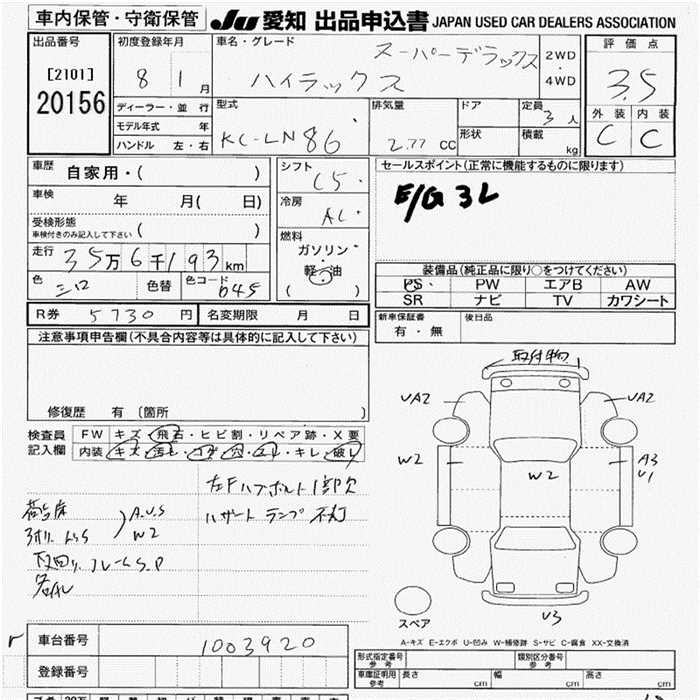 車内保管・守衛保管 JU 愛知 出品申込書 JAPAN USED CAR DEALERS ASSOCIATION
出品番号
[2101]
20156
初度登録年月
8 1 月
車名・グレード
スーパーデラックス
ハイラックス
2WD
・
4WD
評価点
3.5
外装 内装
C C
ディーラー・並行
モデル年式 年
ハンドル 左・右
型式
KC-LN86
排気量
2.77 CC
ドア
形状
定員
3 人
積載
kg
車歴 自家用・( )
車検 年 月( 日)
受検形態
車検付きのみ記入して下さい ( )
走行 35万6千193km
色 シロ 色替 色コード 045
シフト
C5
冷房
AC
燃料
ガソリン・
軽油
( )
セールスポイント(正常に機能するものに限ります)
E/G 3L
装備品(純正品に限り○をつけてください)
PS PW エアB AW
SR ナビ TV カワシート
R券 5730 円 名変期限 月 日
新車保証書
有・無
後日品
注意事項申告欄(不具合内容等は具体的に記入して下さい)
修復歴 有 〔箇所 〕
検査員
記入欄
FW キズ・飛石・ヒビ割・リペア跡・X要
内装 キズ・汚レ・コゲ・穴・スレ・キレ・破レ
左Fハブボルト1部欠
ハザードランプ 不灯
A.U.S
W2
下回り.フレームS.P
取付物
UA2 UA2
W2 W2 A3
U1
U3
スペア
A-キズ E-エクボ U-凹み W-補修跡 S-サビ C-腐食 XX-交換済
車台番号 1003920
登録番号
形式指定番号
参考
類別区分番号
参考
車庫証明用
参考
長さ cm 幅 cm 高さ cm